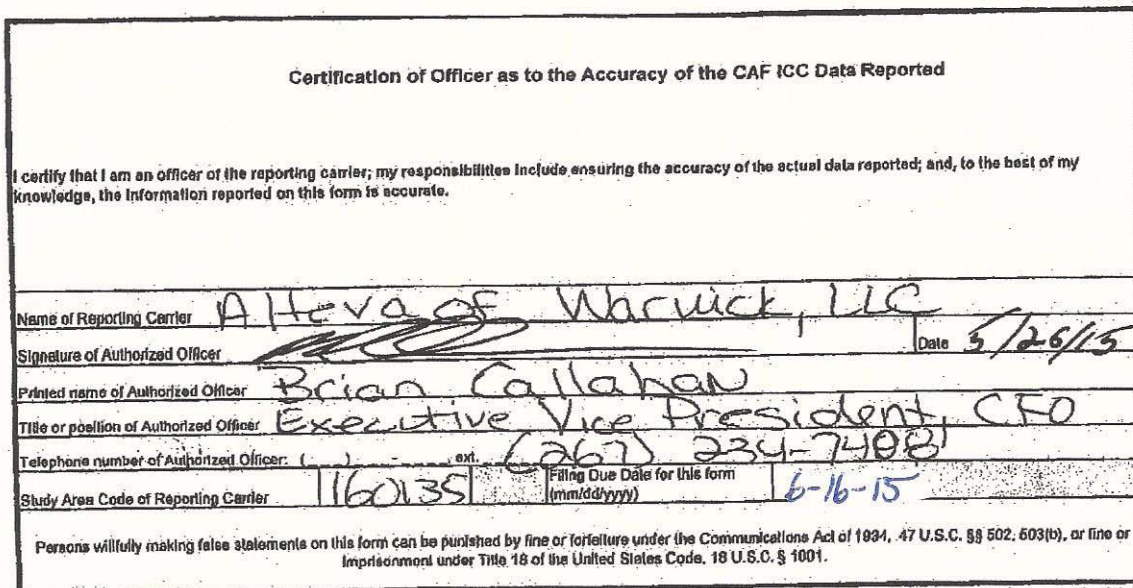 Certification of Officer as to the Accuracy of the CAF ICC Data Reported
I certify that I am an officer of the reporting carrier; my responsibilities include ensuring the accuracy of the actual data reported; and, to the best of my
knowledge, the information reported on this form is accurate.
Name of Reporting Carrier Alteva of Warwick, LLC
Signature of Authorized Officer Date 5/26/15
Printed name of Authorized Officer Brian Callahan
Title or position of Authorized Officer Executive Vice President, CFO
Telephone number of Authorized Officer: ( ) - ext. (267) 234-7408
Study Area Code of Reporting Carrier 160135 Filing Due Date for this form
(mm/dd/yyyy) 6-16-15
Persons willfully making false statements on this form can be punished by fine or forfeiture under the Communications Act of 1934, 47 U.S.C. §§ 502, 503(b), or fine or
imprisonment under Title 18 of the United States Code, 18 U.S.C. § 1001.